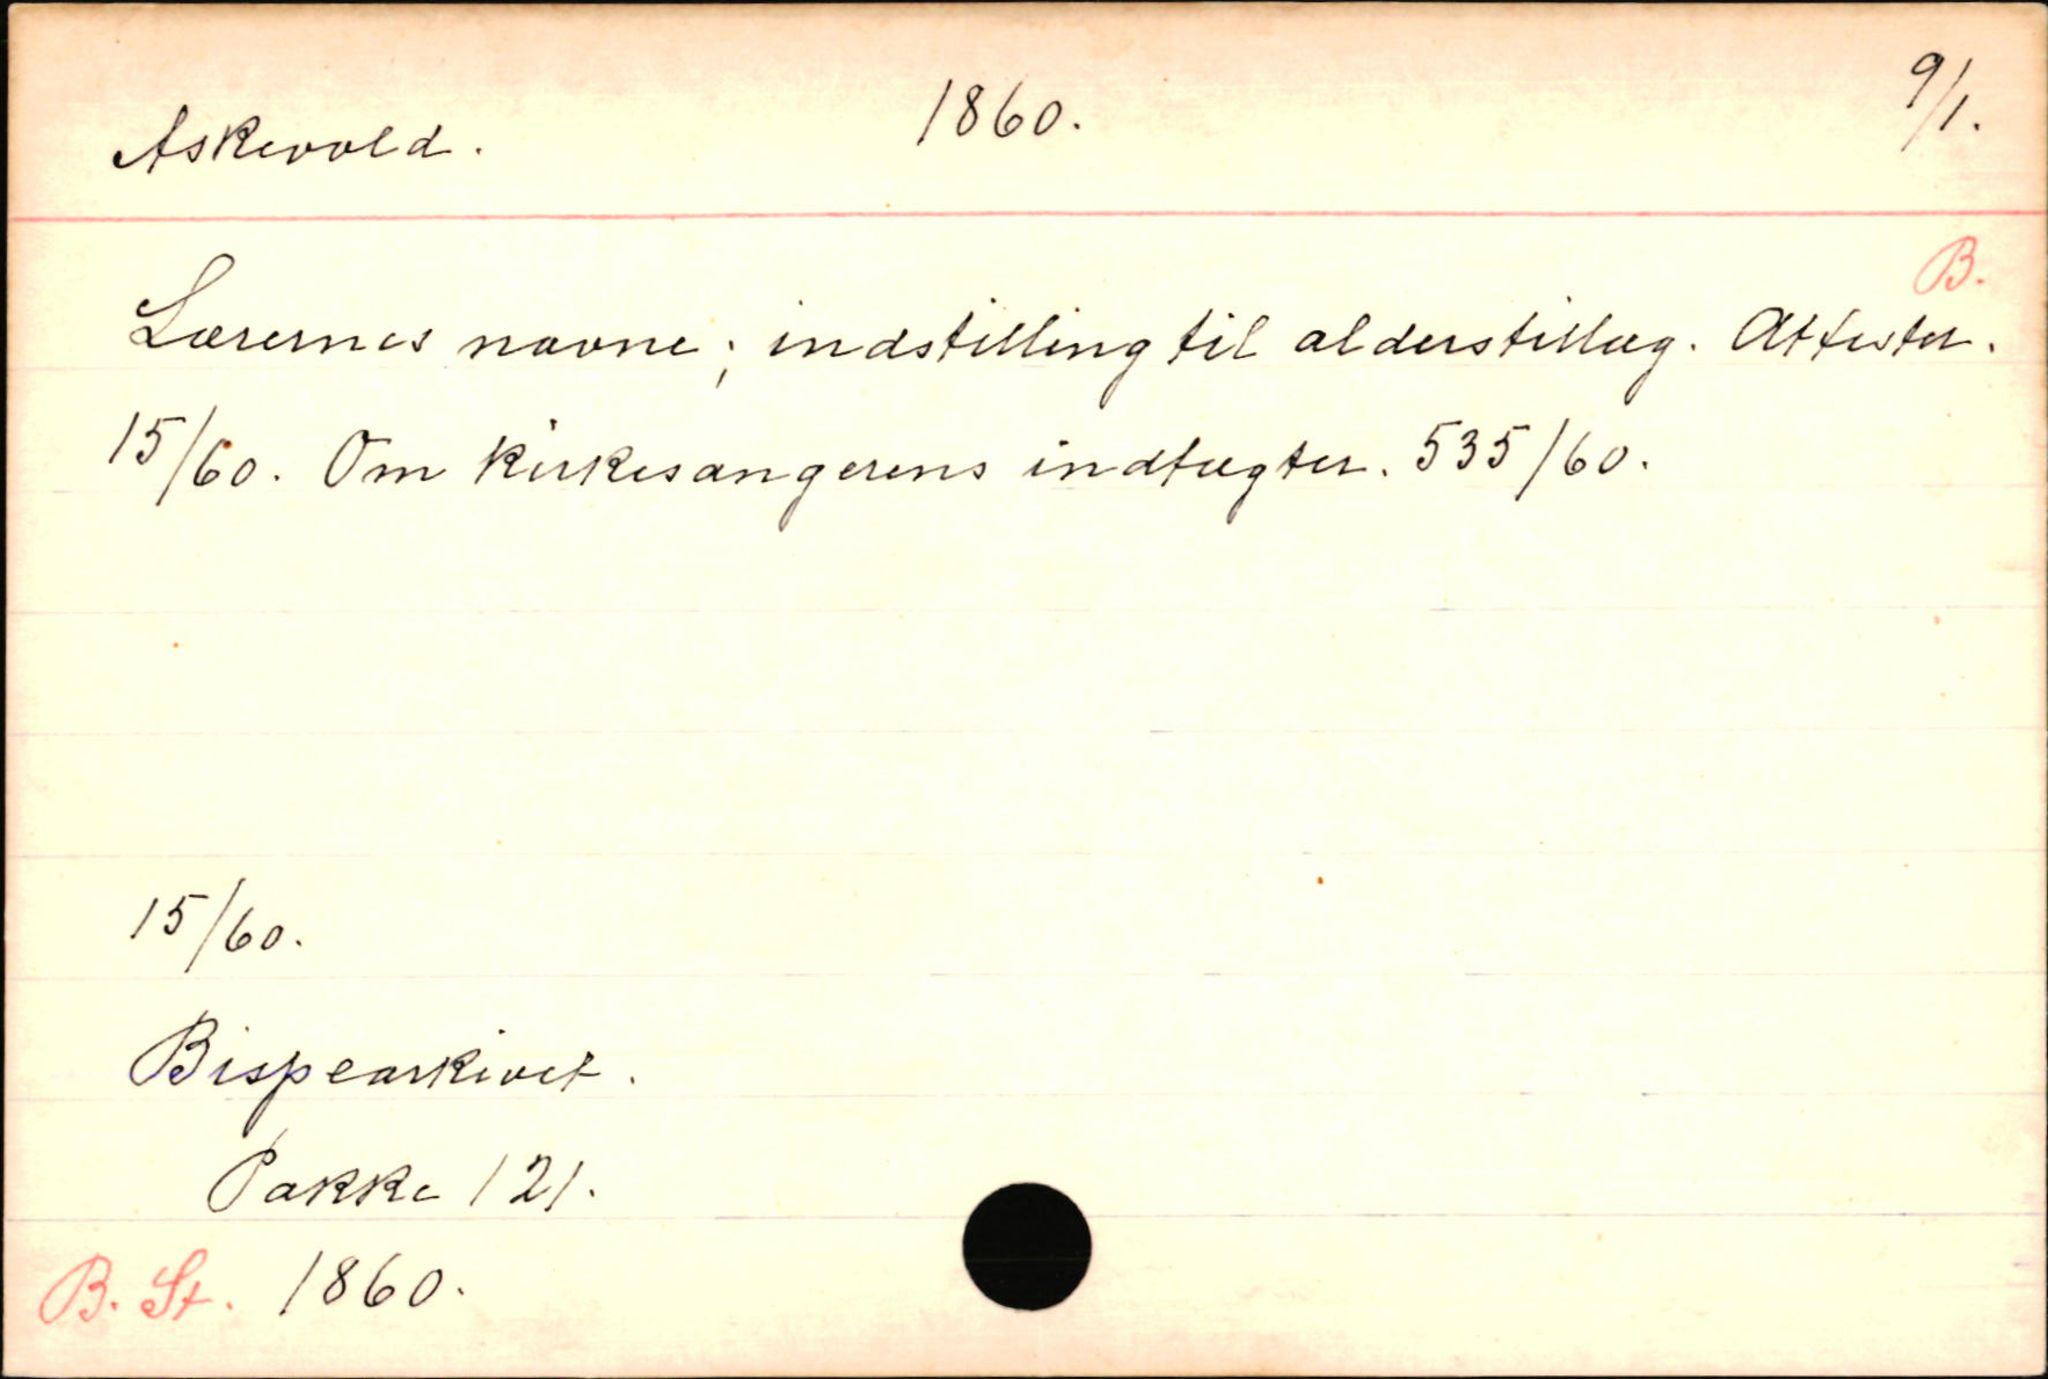 Askevold. 1860. 9/1.
B.
Lærernes navne; indstilling til alderstillæg. Attester.
15/60. Om kirkesangerens indtægter. 535/60.
15/60.
Bispearkivet.
Pakke 121.
B. St. 1860.